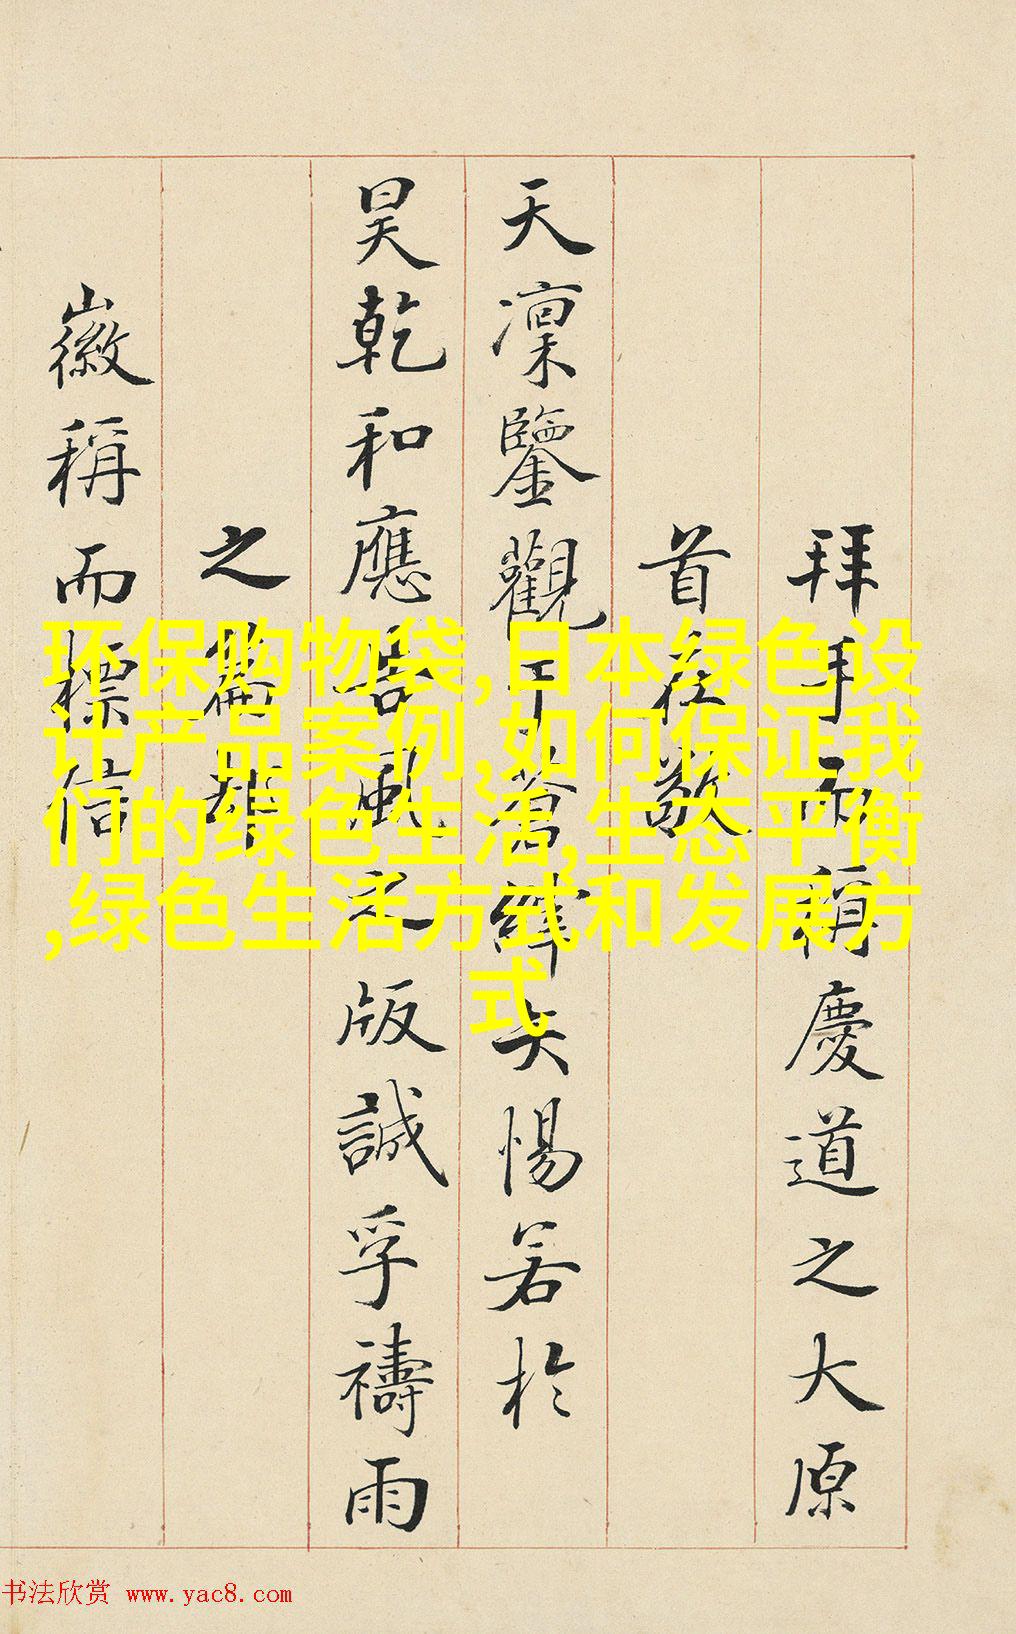 拜手而稱慶道之大原
首在敬
天凜鑒觀于蒼縡矢惕若於
昊乾和應風之版誠孚禱雨
之篇
徽稱而標信
环保购物袋,日本绿色设
计产品案例,如何保证我
们的绿色生活,生态平衡
,绿色生活方式和发展方
式
书法欣赏 www.yac8.com